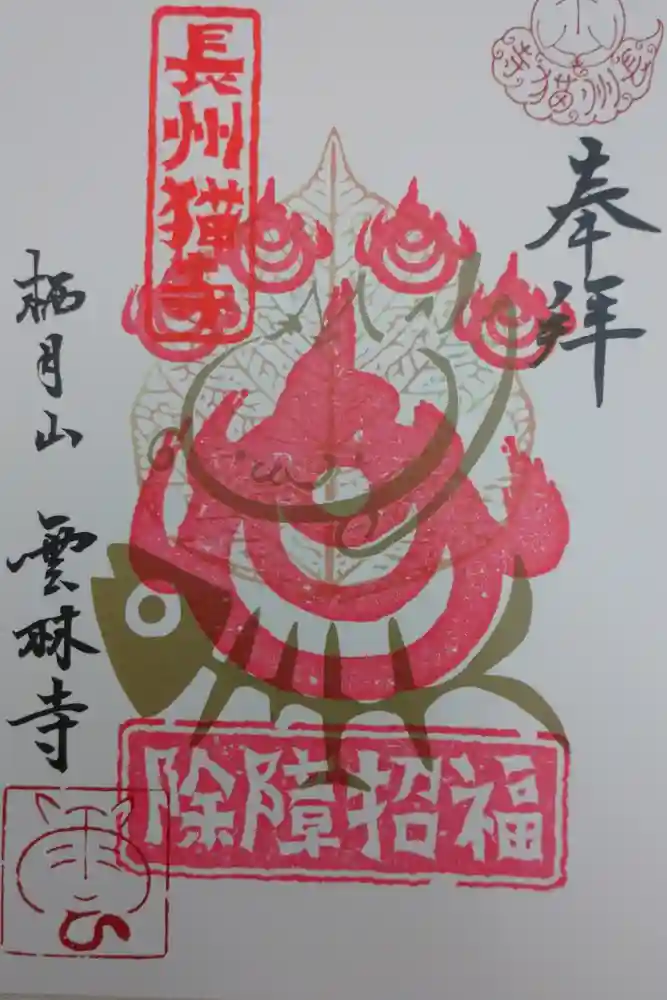 長州猫寺
奉拝
除障招福
栖月山 雲林寺
長州猫寺